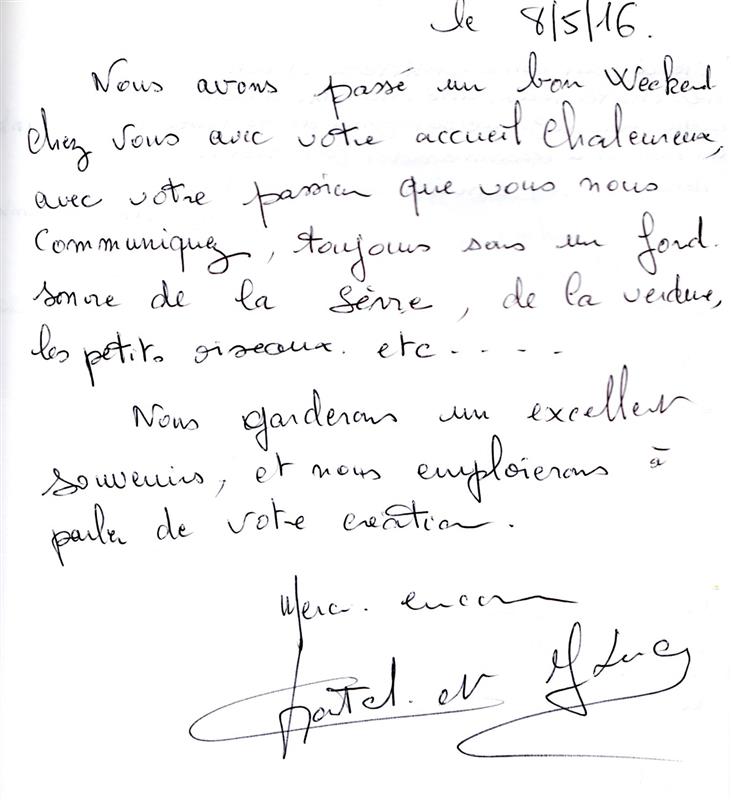 le 8/5/16.
Nous avons passé un bon Weekend
chez Vous avec votre accueil Chaleureux,
avec votre passion que vous nous
Communiquez, toujours sous un fond.
sonore de la Sèvre, de la verdure,
les petits oiseaux. etc.....
Nous garderons un excellent
souvenirs, et nous emploierons à
parler de votre création.
Merci encore
et